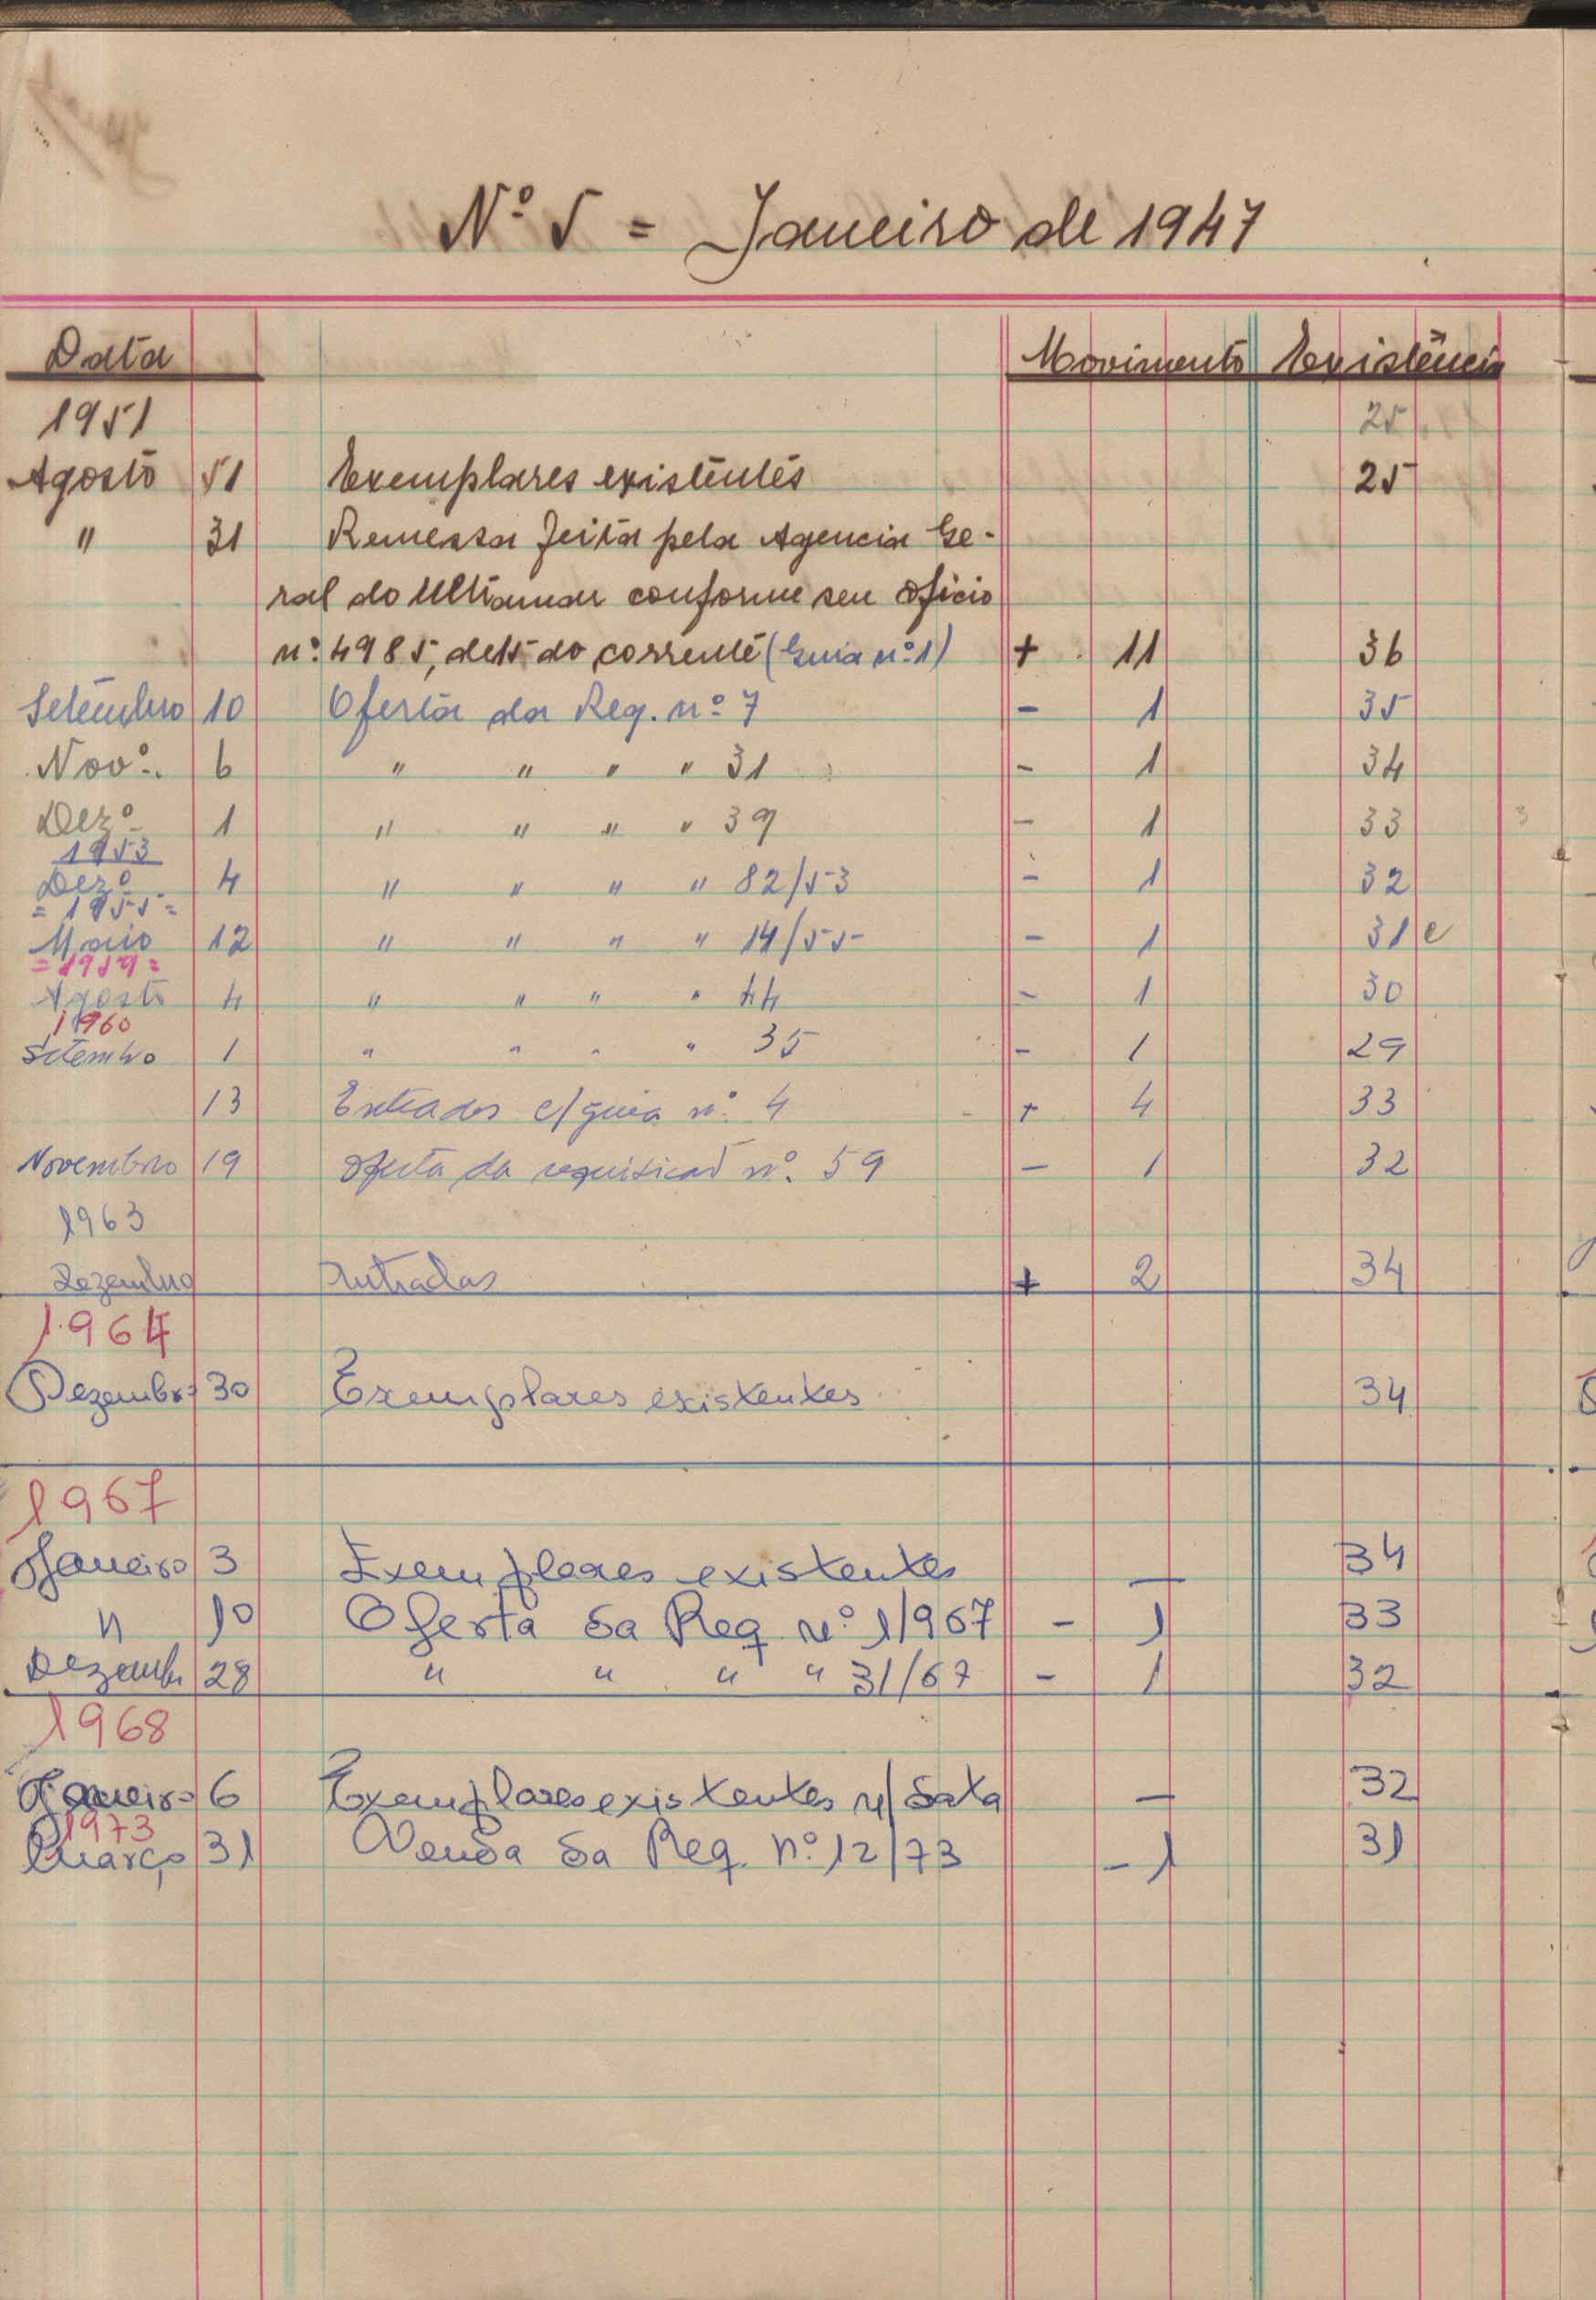 Nº 5 = Janeiro de 1947
Data Movimento Existência
1951 25
Agosto 51 Exemplares existentes 25
" 31 Remessa feita pela Agencia Ge-
ral do Ultramar conforme seu oficio
nº 4985, de 15 do corrente (Guia nº 1) + 11 36
Setembro 10 Oferta da Req. nº 7 - 1 35
Novº. 6 " " " " 31 - 1 34
Dezº 1 " " " " 39 - 1 33
1953
Dezº 4 " " " " 82/53 - 1 32
= 1955 =
Maio 12 " " " " 14/55 - 1 31 e
= 1959 =
Agosto 4 " " " " 44 - 1 30
1960
Setembro 1 " " " " 35 - 1 29
13 Entrados c/guia nº 4 + 4 33
Novembro 19 Oferta da requisicão nº. 59 - 1 32
1963
Dezembro Entradas + 2 34
1964
Dezembro 30 Exemplares existentes 34
1967
Janeiro 3 Exemplares existentes — 34
" 10 Oferta da Req nº 1/967 - 1 33
Dezemb. 28 " " " " 31/67 - 1 32
1968
Janeiro 6 Exemplares existentes n/ data — 32
1973
Março 31 Venda da Req. nº 12/73 - 1 31